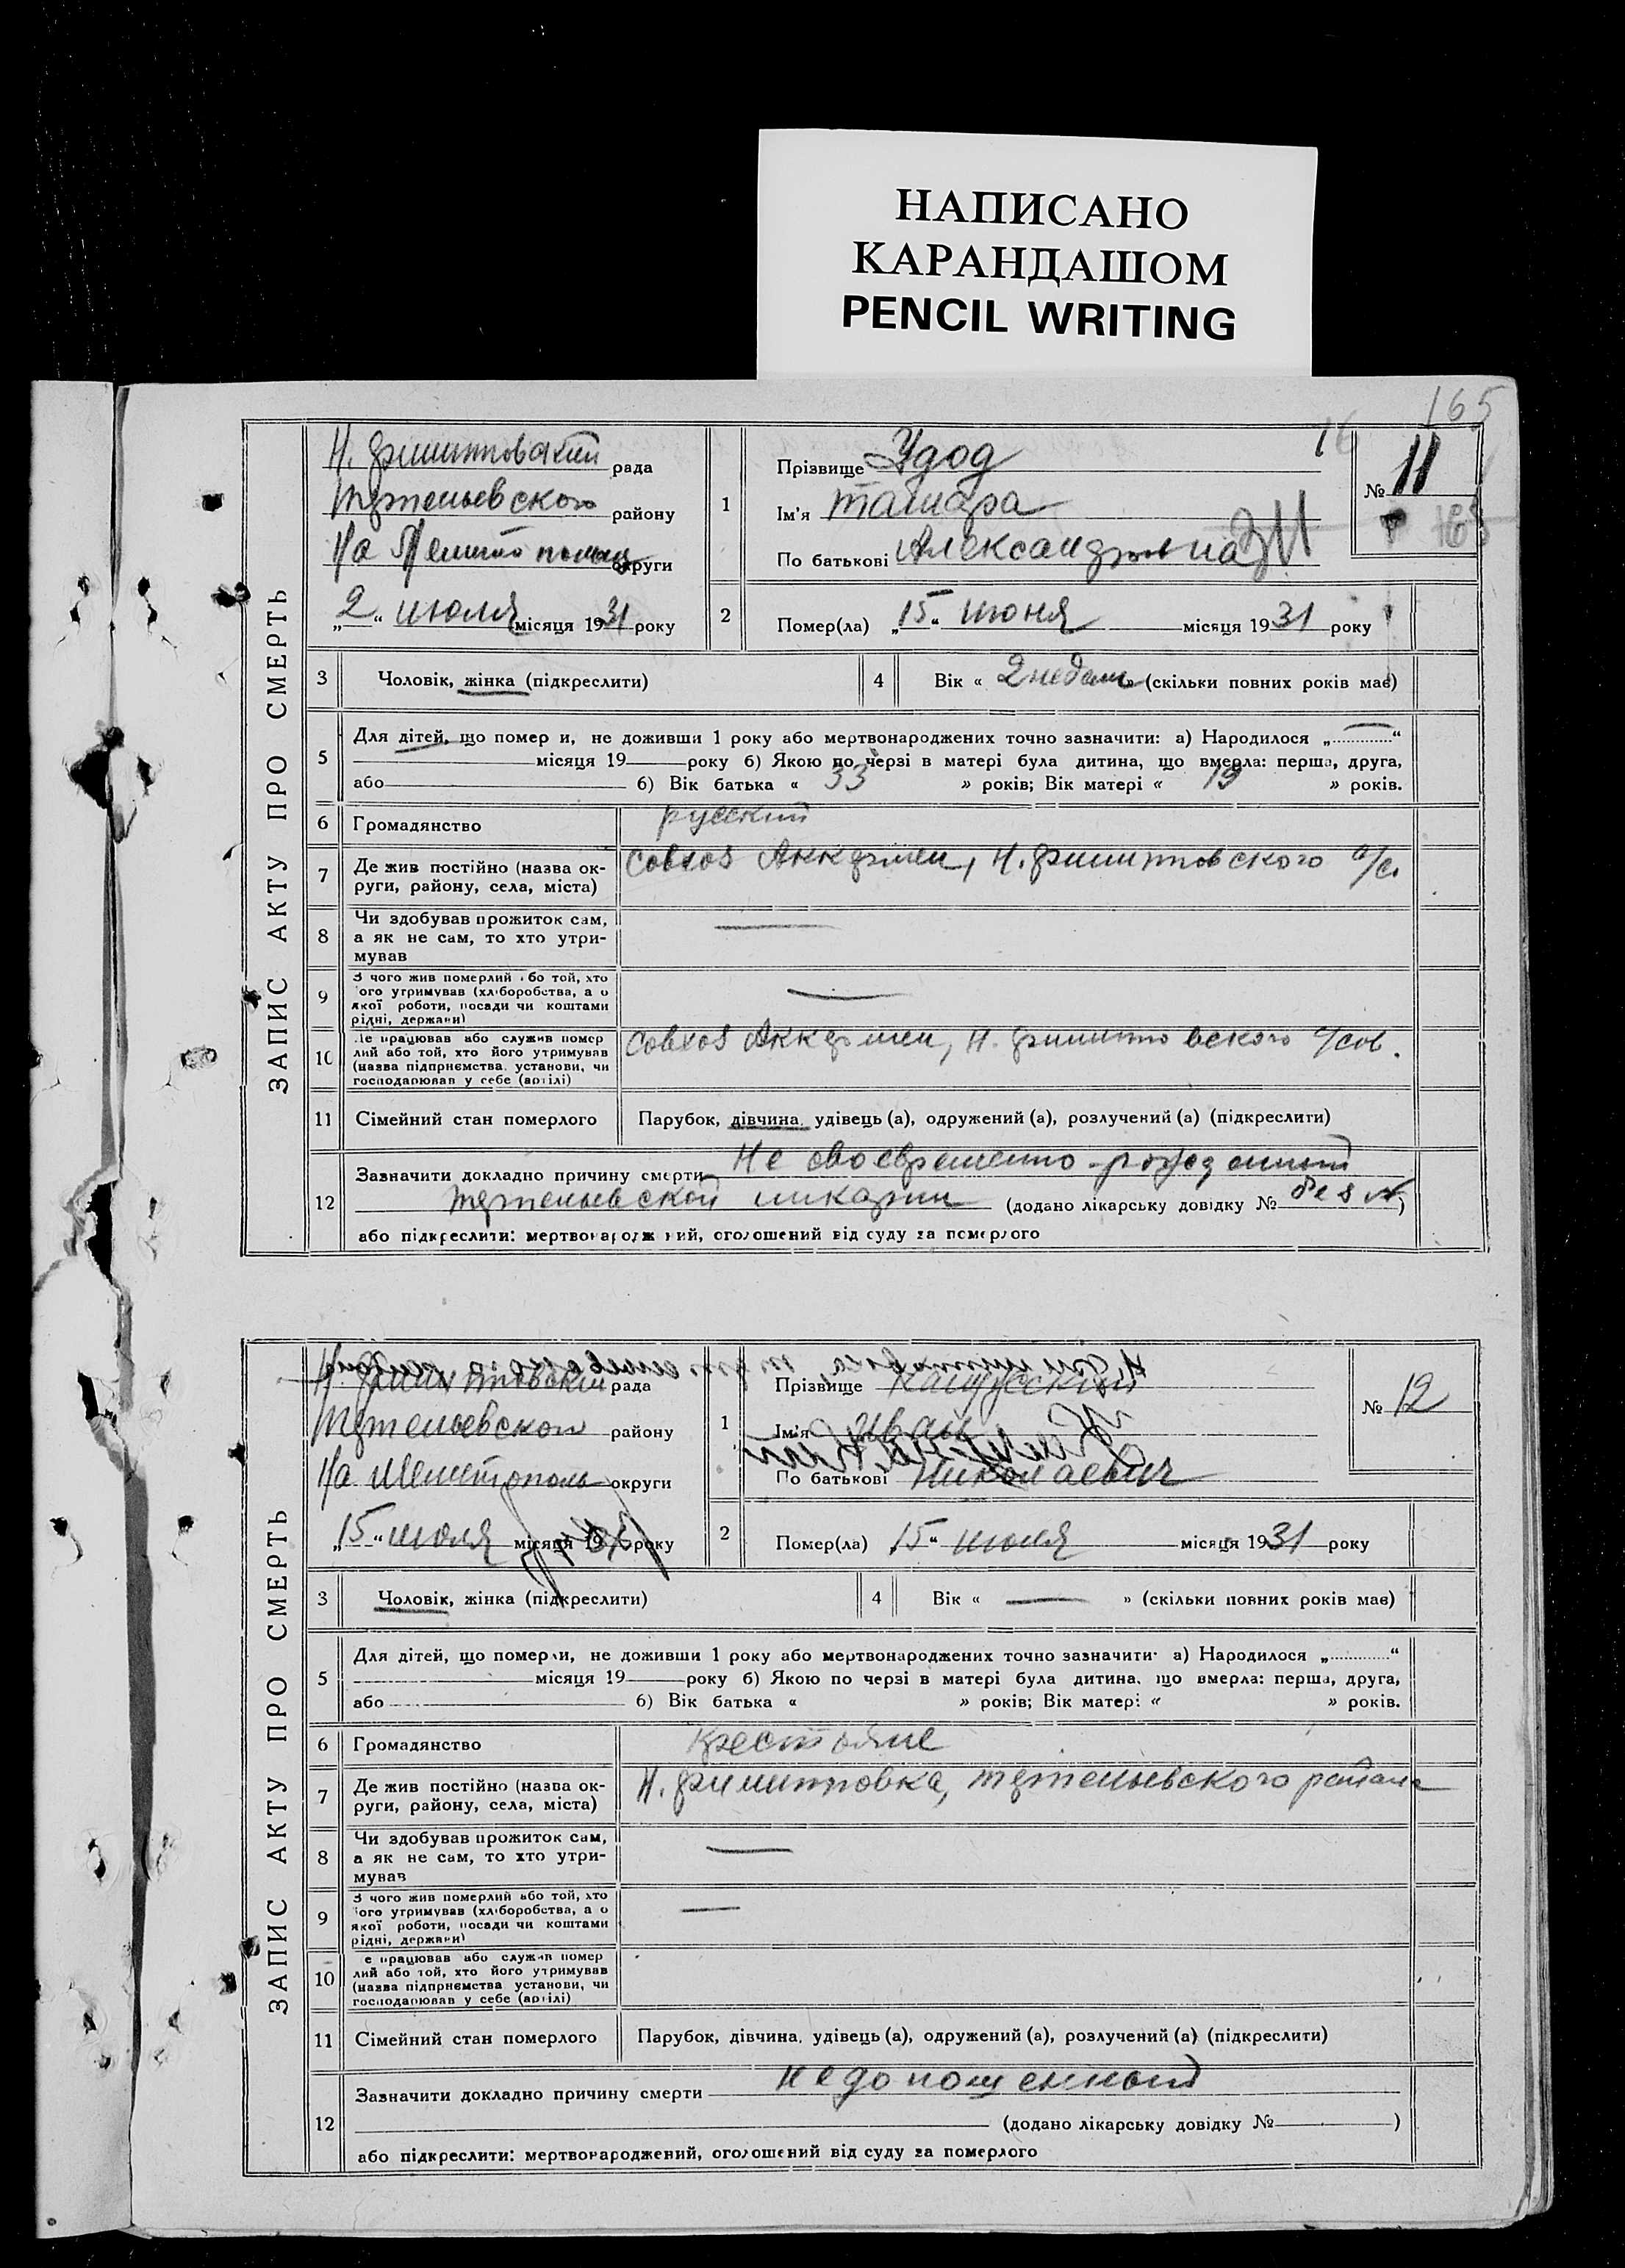 НАПИСАНО
КАРАНДАШОМ
PENCIL WRITING
165
16
ЗАПИС АКТУ ПРО СМЕРТЬ
рада
району
На округи
„2“ июля місяця 1931 року
1
Прізвище Удод
Ім'я Тамара
По батькові Александровна
№ 11
2
Помер(ла) „15“ июня місяця 1931 року
3
Чоловік, жінка (підкреслити)
4
Вік « 2 недели » (скільки повних років має)
5
Для дітей, що помер и, не доживши 1 року або мертвонароджених точно зазначити: а) Народилося „ “
місяця 19 року б) Якою по черзі в матері була дитина, що вмерла: перша, друга,
або б) Вік батька « 33 » років; Вік матері « 19 » років.
6
Громадянство
русский
7
Де жив постійно (назва ок-
руги, району, села, міста)
совхоз Аккермен, Н. с/с.
8
Чи здобував прожиток сам,
а як не сам, то хто утри-
мував
9
З чого жив померлий або той, хто
ого утримував (хліборобства, а о
якої роботи, посади чи коштами
рідні, держави)
10
Де працював або служив помер
лий або той, хто його утримував
(назва підприємства, установи, чи
господарював у себе (артілі)
совхоз Аккермен, Н. с/сов.
11
Сімейний стан померлого
Парубок, дівчина, удівець (а), одружений (а), розлучений (а) (підкреслити)
12
Зазначити докладно причину смерти Не своевременно-рожденный
(додано лікарську довідку № без №)
або підкреслити: мертвонароджений, оголошений від суду за померлого
ЗАПИС АКТУ ПРО СМЕРТЬ
рада
району
На округи
„15“ июля місяця 19 року
1
Прізвище
Ім'я Иван
По батькові Николаевич
№ 12
2
Помер(ла) 15“ июля місяця 1931 року
3
Чоловік, жінка (підкреслити)
4
Вік « » (скільки повних років має)
5
Для дітей, що померли, не доживши 1 року або мертвонароджених точно зазначити: а) Народилося „ “
місяця 19 року б) Якою по черзі в матері була дитина, що вмерла: перша, друга,
або б) Вік батька « » років; Вік матері « » років.
6
Громадянство
крестьяне
7
Де жив постійно (назва ок-
руги, району, села, міста)
Н. района
8
Чи здобував прожиток сам,
а як не сам, то хто утри-
мував
9
З чого жив померлий або той, хто
ого утримував (хліборобства, а о
якої роботи, посади чи коштами
рідні, держави)
10
е працював або служив помер
лий або той, хто його утримував
(назва підприємства, установи, чи
господарював у себе (артілі)
11
Сімейний стан померлого
Парубок, дівчина, удівець (а), одружений (а), розлучений (а) (підкреслити)
12
Зазначити докладно причину смерти недоношенный
(додано лікарську довідку № )
або підкреслити: мертвонароджений, оголошений від суду за померлого